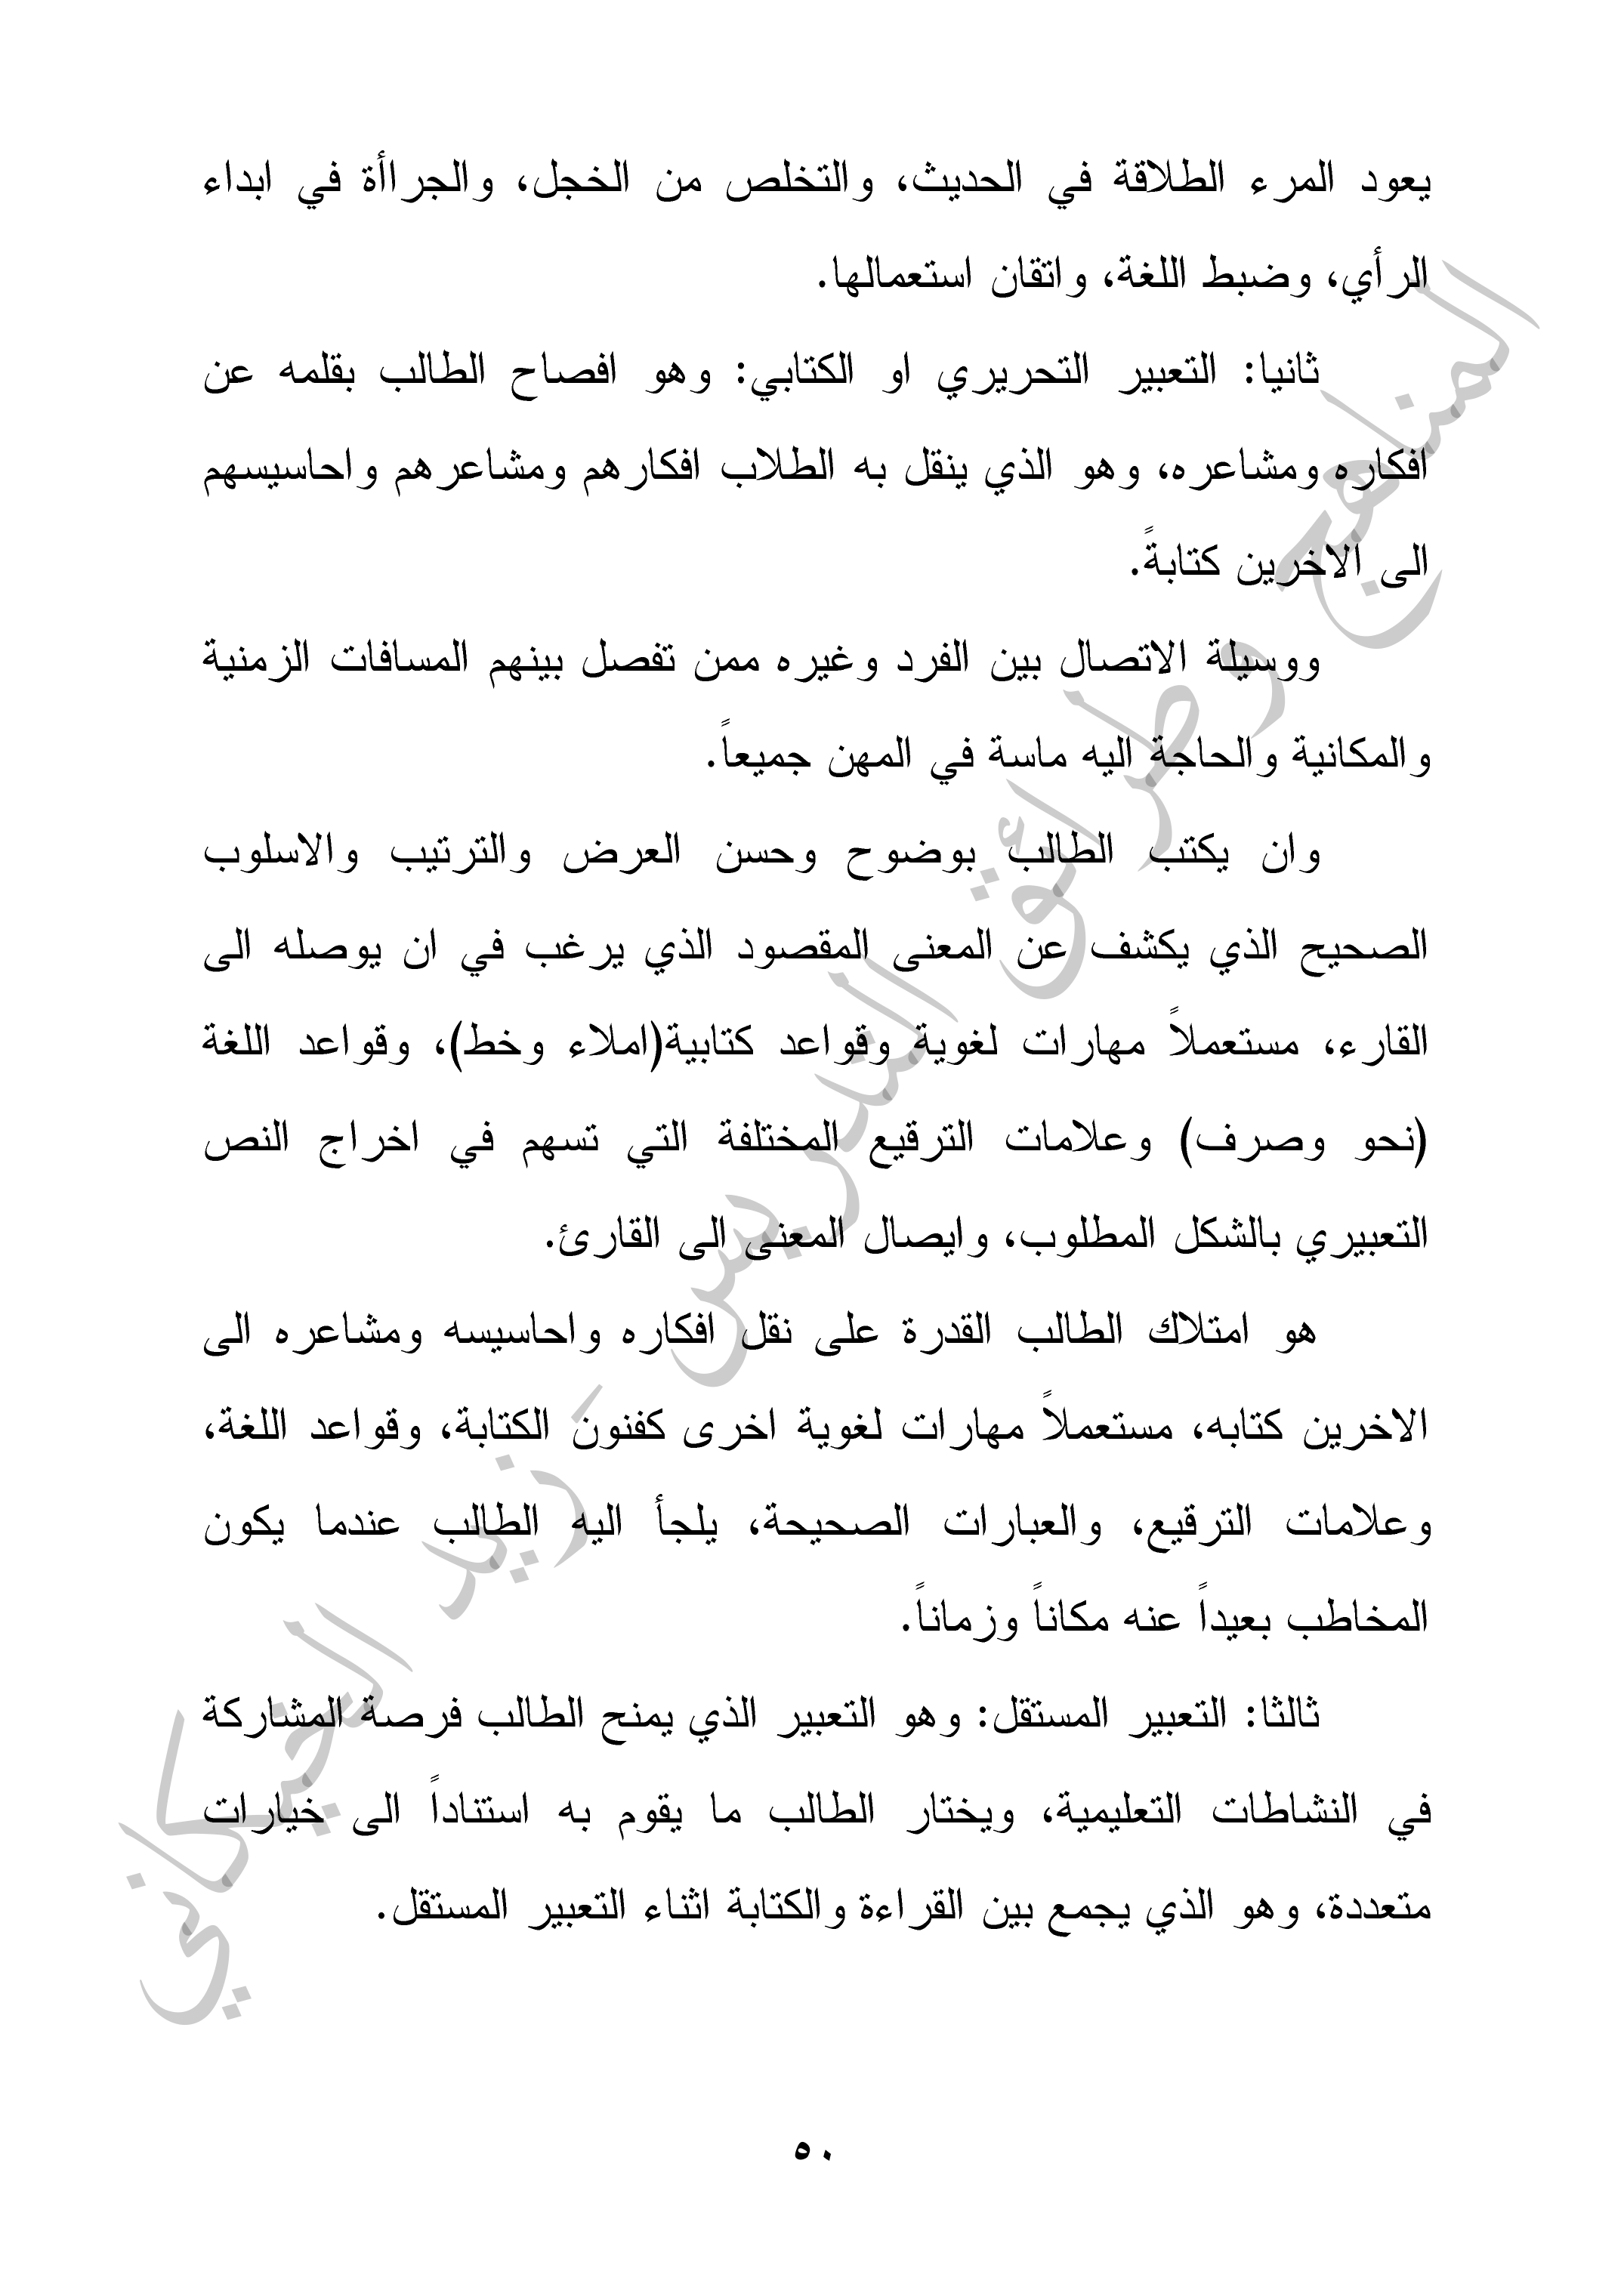 يعود المرء الطلاقة في الحديث، والتخلص من الخجل، والجراأة في ابداء
الرأي، وضبط اللغة، واتقان استعمالها.
ثانيا: التعبير التحريري او الكتابي: وهو افصاح الطالب بقلمه عن
افكاره ومشاعره، وهو الذي ينقل به الطلاب افكارهم ومشاعرهم واحاسيسهم
الى الاخرين كتابةً.
ووسيلة الاتصال بين الفرد وغيره ممن تفصل بينهم المسافات الزمنية
والمكانية والحاجة اليه ماسة في المهن جميعاً.
وان يكتب الطالب بوضوح وحسن العرض والترتيب والاسلوب
الصحيح الذي يكشف عن المعنى المقصود الذي يرغب في ان يوصله الى
القارء، مستعملاً مهارات لغوية وقواعد كتابية(املاء وخط)، وقواعد اللغة
(نحو وصرف) وعلامات الترقيع المختلفة التي تسهم في اخراج النص
التعبيري بالشكل المطلوب، وايصال المعنى الى القارئ.
هو امتلاك الطالب القدرة على نقل افكاره واحاسيسه ومشاعره الى
الاخرين كتابه، مستعملاً مهارات لغوية اخرى كفنون الكتابة، وقواعد اللغة،
وعلامات الترقيع، والعبارات الصحيحة، يلجأ اليه الطالب عندما يكون
المخاطب بعيداً عنه مكاناً وزماناً.
ثالثا: التعبير المستقل: وهو التعبير الذي يمنح الطالب فرصة المشاركة
في النشاطات التعليمية، ويختار الطالب ما يقوم به استناداً الى خيارات
متعددة، وهو الذي يجمع بين القراءة والكتابة اثناء التعبير المستقل.
المناهج وطرائق التدريس - زيد الخيكاني
٥٠